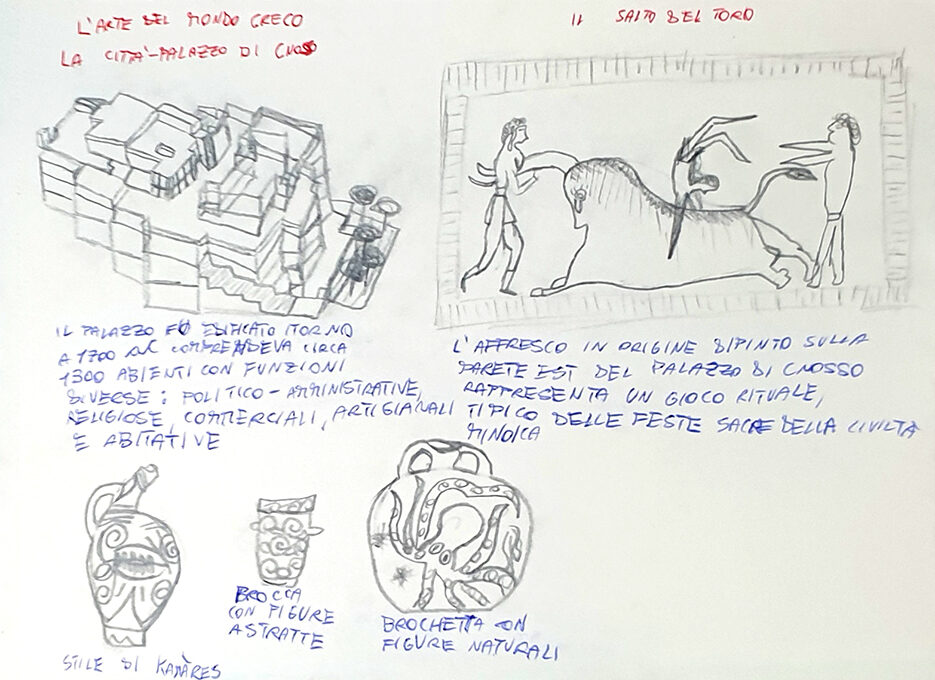 L'ARTE DEL MONDO GRECO
LA CITTA'-PALAZZO DI CNOSSO
IL SALTO DEL TORO
IL PALAZZO FU EDIFICATO ITORNO
A 1700 AC COMPRENDEVA CIRCA
1300 ABIENTI CON FUNZIONI
DIVERSE: POLITICO-AMMINISTRATIVE,
RELIGIOSE, COMMERCIALI, ARTIGIANALI
E ABITATIVE
L'AFFRESCO IN ORIGINE DIPINTO SULLA
PARETE EST DEL PALAZZO DI CNOSSO
RAPPRESENTA UN GIOCO RITUALE,
TIPICO DELLE FESTE SACRE DELLA CIVILTÀ
MINOICA
STILE DI KAMÀRES
BROCCA
CON FIGURE
ASTRATTE
BROCHETTA CON
FIGURE NATURALI